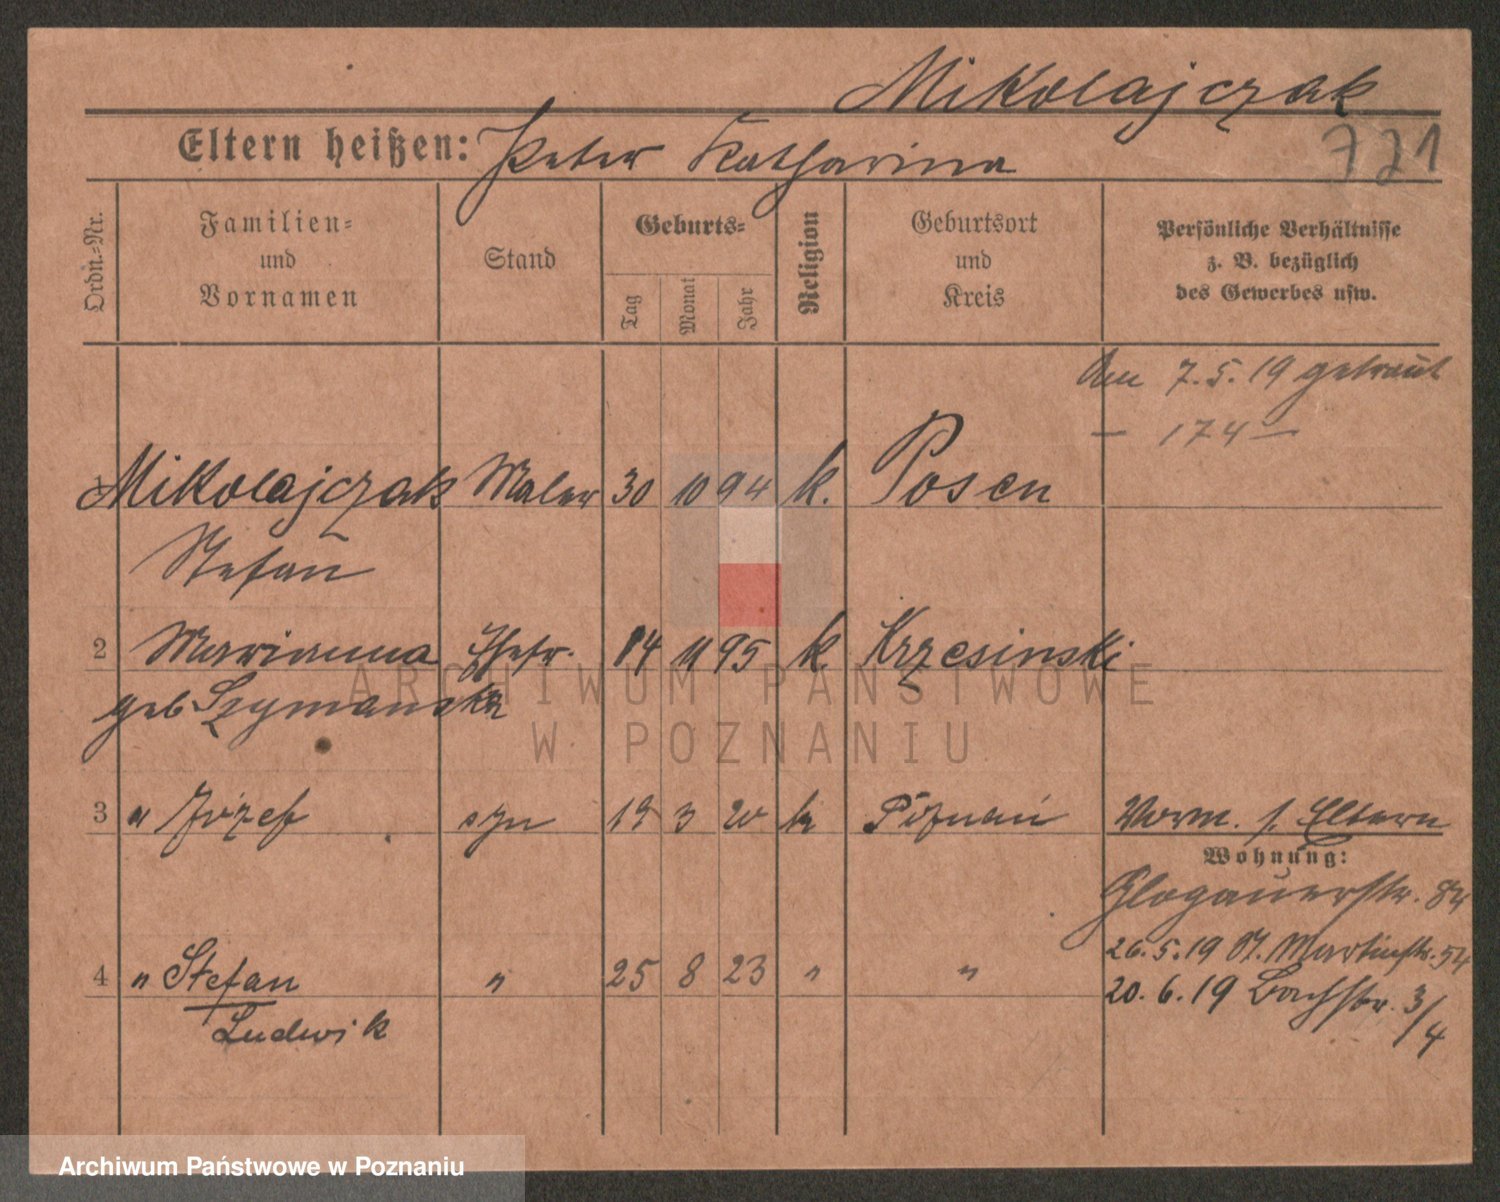 Mikolajczak
721
Eltern heißen: Peter Katharina
Ordn.-Nr.
Familien-
und
Vornamen
Stand
Geburts-
Tag
Monat
Jahr
Religion
Geburtsort
und
Kreis
Persönliche Verhältnisse
z. B. bezüglich
des Gewerbes usw.
Am 7.5.19 getraut
— 174 —
1 Mikolajczak Maler 30 10 94 k. Posen
Stefan
2 Marianna Ehefr. 14 11 95 k. Krzesinski
geb Szymanska
3 " Józef syn 19 3 20 k Poznań Worm. s. Eltern
Wohnung:
Glogauerstr. 84
26.5.19 St. Martinstr. 54
4 " Stefan " 25 8 23 " " 20.6.19 Bachstr. 3/4
Ludwik
ARCHIWUM PAŃSTWOWE
W POZNANIU
Archiwum Państwowe w Poznaniu